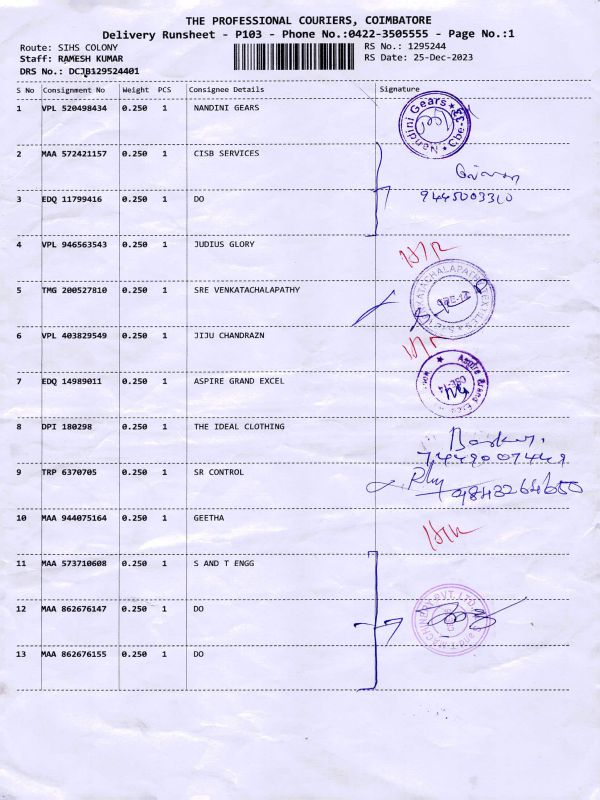 THE PROFESSIONAL COURIERS, COIMBATORE
Delivery Runsheet - P103 - Phone No.:0422-3505555 - Page No.:1
Route: SIHS COLONY
RS No.: 1295244
Staff: RAMESH KUMAR
RS Date: 25-Dec-2023
DRS No.: DCJB129524401
S No Consignment No Weight PCS Consignee Details Signature
1 VPL 520498434 0.250 1 NANDINI GEARS
Nandini Gears ★ Cbe-33 ★
2 MAA 572421157 0.250 1 CISB SERVICES
3 EDQ 11799416 0.250 1 DO 9445003310
4 VPL 946563543 0.250 1 JUDIUS GLORY
5 TMG 200527810 0.250 1 SRE VENKATACHALAPATHY
6 VPL 403829549 0.250 1 JIJU CHANDRAZN
7 EDQ 14989011 0.250 1 ASPIRE GRAND EXCEL
8 DPI 180298 0.250 1 THE IDEAL CLOTHING Baskar.
9 TRP 6370705 0.250 1 SR CONTROL 9843264650
10 MAA 944075164 0.250 1 GEETHA
11 MAA 573710608 0.250 1 S AND T ENGG
12 MAA 862676147 0.250 1 DO
13 MAA 862676155 0.250 1 DO